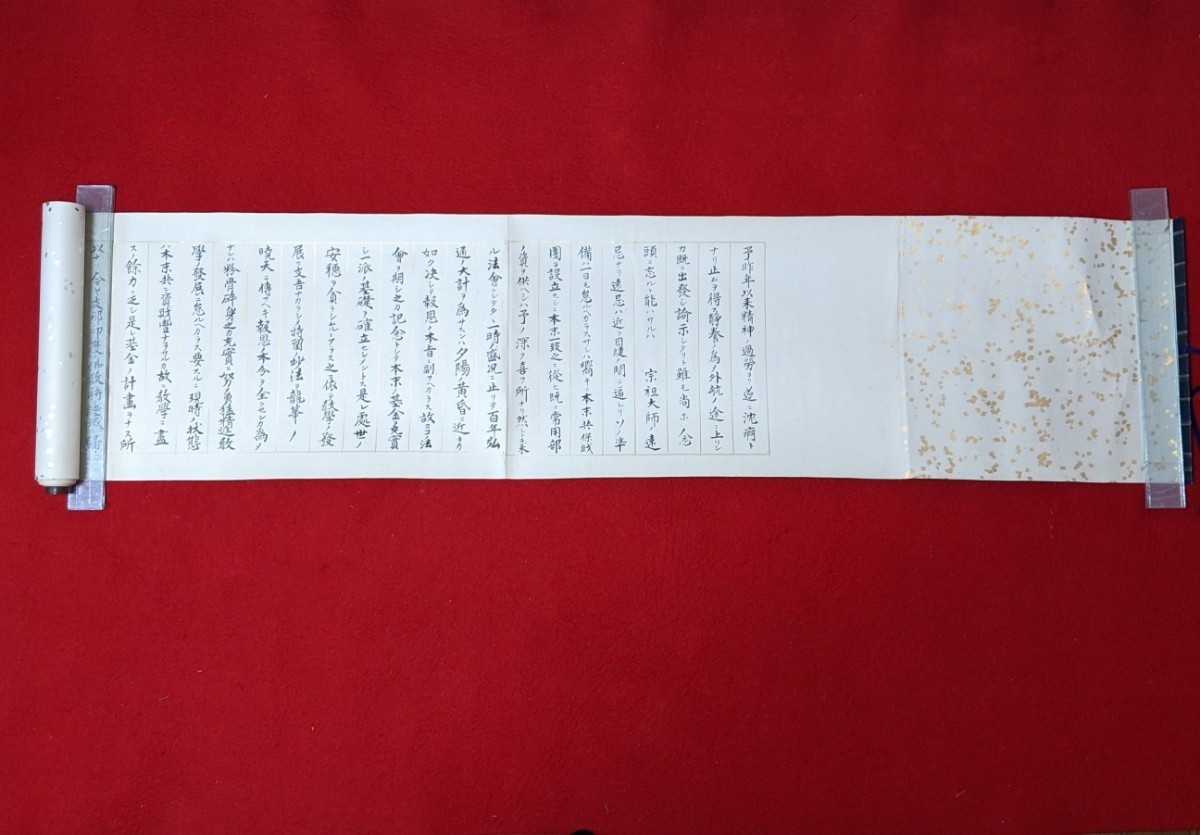 予昨年以来精神ノ過労ヨリ遂ニ沈痾ト
ナリ止ムヲ得ス静養ノ為ノ外航ノ途ニ上リシ
カ既ニ出發シ諭示シタリト雖モ尚ホ念
頭ニ忘ルヽ能ハサルハ 宗祖大師ノ遠
忌ナリ遠忌ハ近ク目睫ノ間ニ逼レリソノ準
備ハ一日モ怠ルヘカラスサレハ嚮キニ本宗共保財
團ヲ設立セシニ本宗一致之ニ從ヒ既ニ常用部
ノ資ヲ供ヘシハ予ノ深ク喜フ所ナリ然レトモ来
ル法會ニシテタヽ一時ノ盛況ニ止リテ百年弘
通ノ大計ヲ為サスンハ夕陽黄昏ニ近キカ
如ク決シテ報恩ノ本旨ニ副サヘカラス故ニ法
會ヲ期シ之カ記念トシテ本宗ノ基金ヲ充實
シ一派ノ基礎ヲ確立セシメントス是レ處世ノ
安穏ヲ貪ラシムルニアラス之ニ依テ教學ノ發
展ニ支吾ナカラシメ特留妙法ヲ龍華ノ
暁天ニ傳フヘキ報恩ノ本分ヲ全フセンカ為メ
ナレハ粉骨碎身之カ充實ニ如カメ勇猛精進教
學ノ發展ニ怠ルヘカラス要スルニ現時ノ状態
ハ本宗共ニ資財豊ナラサルカ故ニ教學ニ盡
スノ餘力ニ乏シ是レ基金ノ計畫ヲナス所
以ナリ